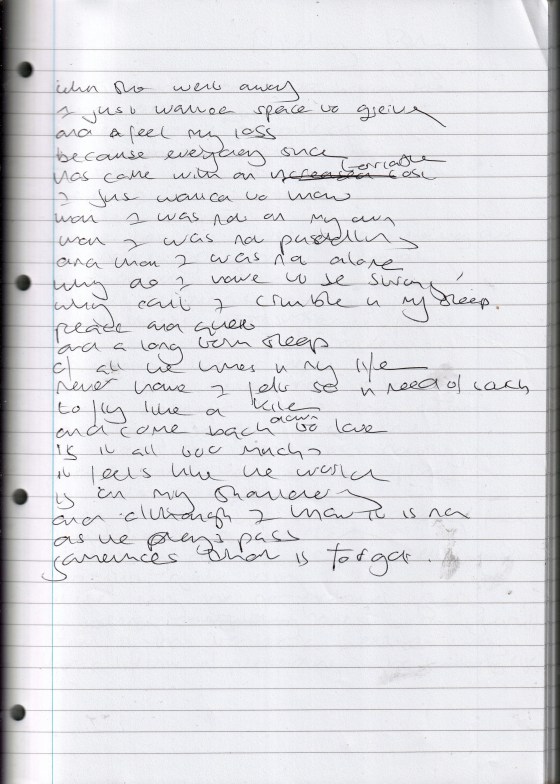 when she went away
I just wanted space to grieve
and feel my loss
because everyday since
has come with an terrible cost
I just wanted to know
when I was not on my own
when I was not paddling
and when I was not alone
why do I have to be strong
why can't I crumble in my sleep.
peace and quiet
and a long born sleep
of all the times in my life
never have I felt so in need of
to fly like a kite
and come back down to love
Is it all too much?
it feels like the world
is on my shoulders
and although I know it is not
as the days pass
sometimes that is forgot.